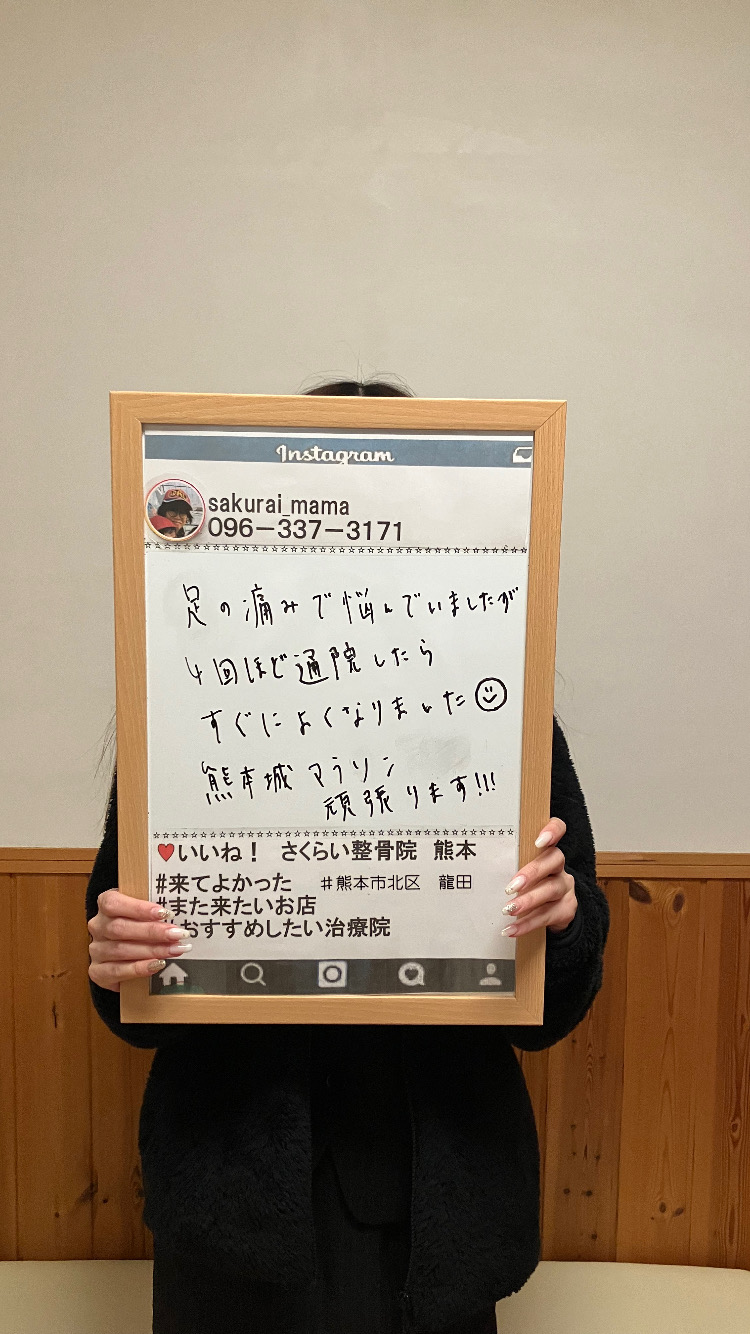 Instagram
sakurai_mama
096-337-3171
足の痛みで悩んでいましたが
4回ほど通院したら
すぐによくなりました
熊本城マラソン
頑張ります!!!
♥いいね！ さくらい整骨院 熊本
#来てよかった #熊本市北区 龍田
#また来たいお店
#おすすめしたい治療院